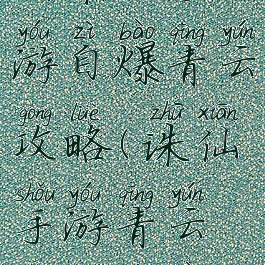 yóu zì bào qīng yún
游自爆青云
gōng lüè zhū xiān
攻略(诛仙
shǒu yóu qīng yún
手游青云